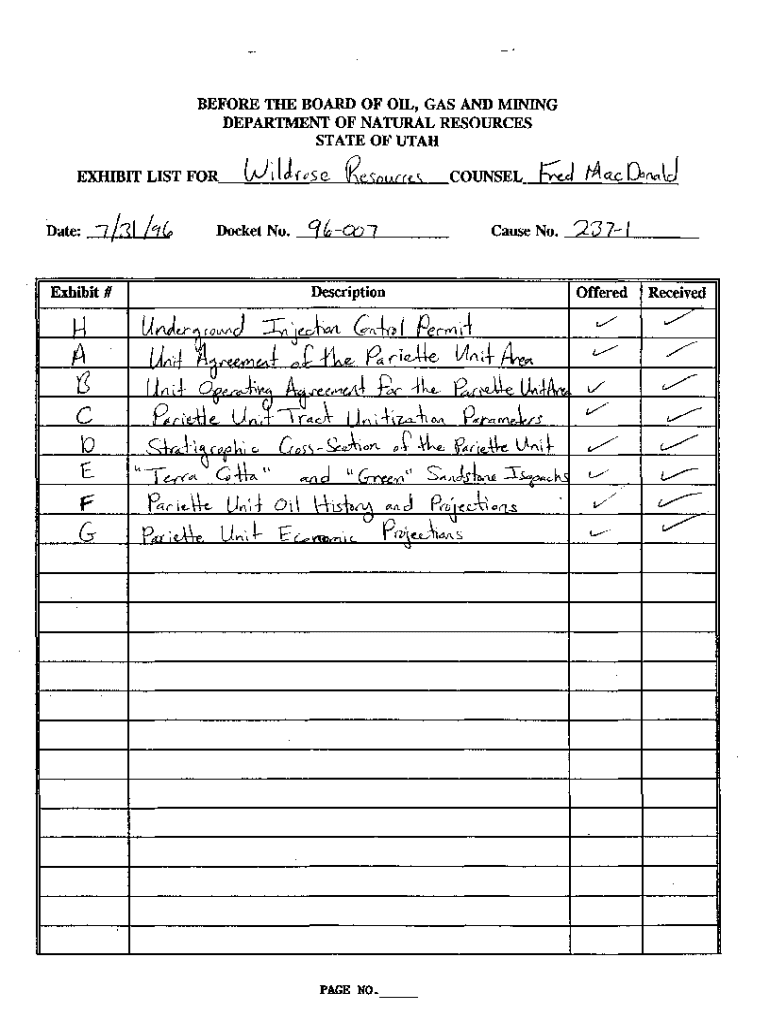 BEFORE THE BOARD OF OIL, GAS AND MINING
DEPARTMENT OF NATURAL RESOURCES
STATE OF UTAH
EXHIBIT LIST FOR Wildrose Resources COUNSEL Fred MacDonald
Date: 7/31/96 Docket No. 96-007 Cause No. 237-1
Exhibit # Description Offered Received
H Underground Injection Control Permit ✓ ✓
A Unit Agreement of the Pariette Unit Area ✓ ✓
B Unit Operating Agreement for the Pariette Unit Area ✓ ✓
C Pariette Unit Tract Unitization Parameters ✓ ✓
D Stratigraphic Cross-Section of the Pariette Unit ✓ ✓
E "Terra Cotta" and "Green" Sandstone Isopachs ✓ ✓
F Pariette Unit Oil History and Projections ✓ ✓
G Pariette Unit Economic Projections ✓ ✓
PAGE NO.